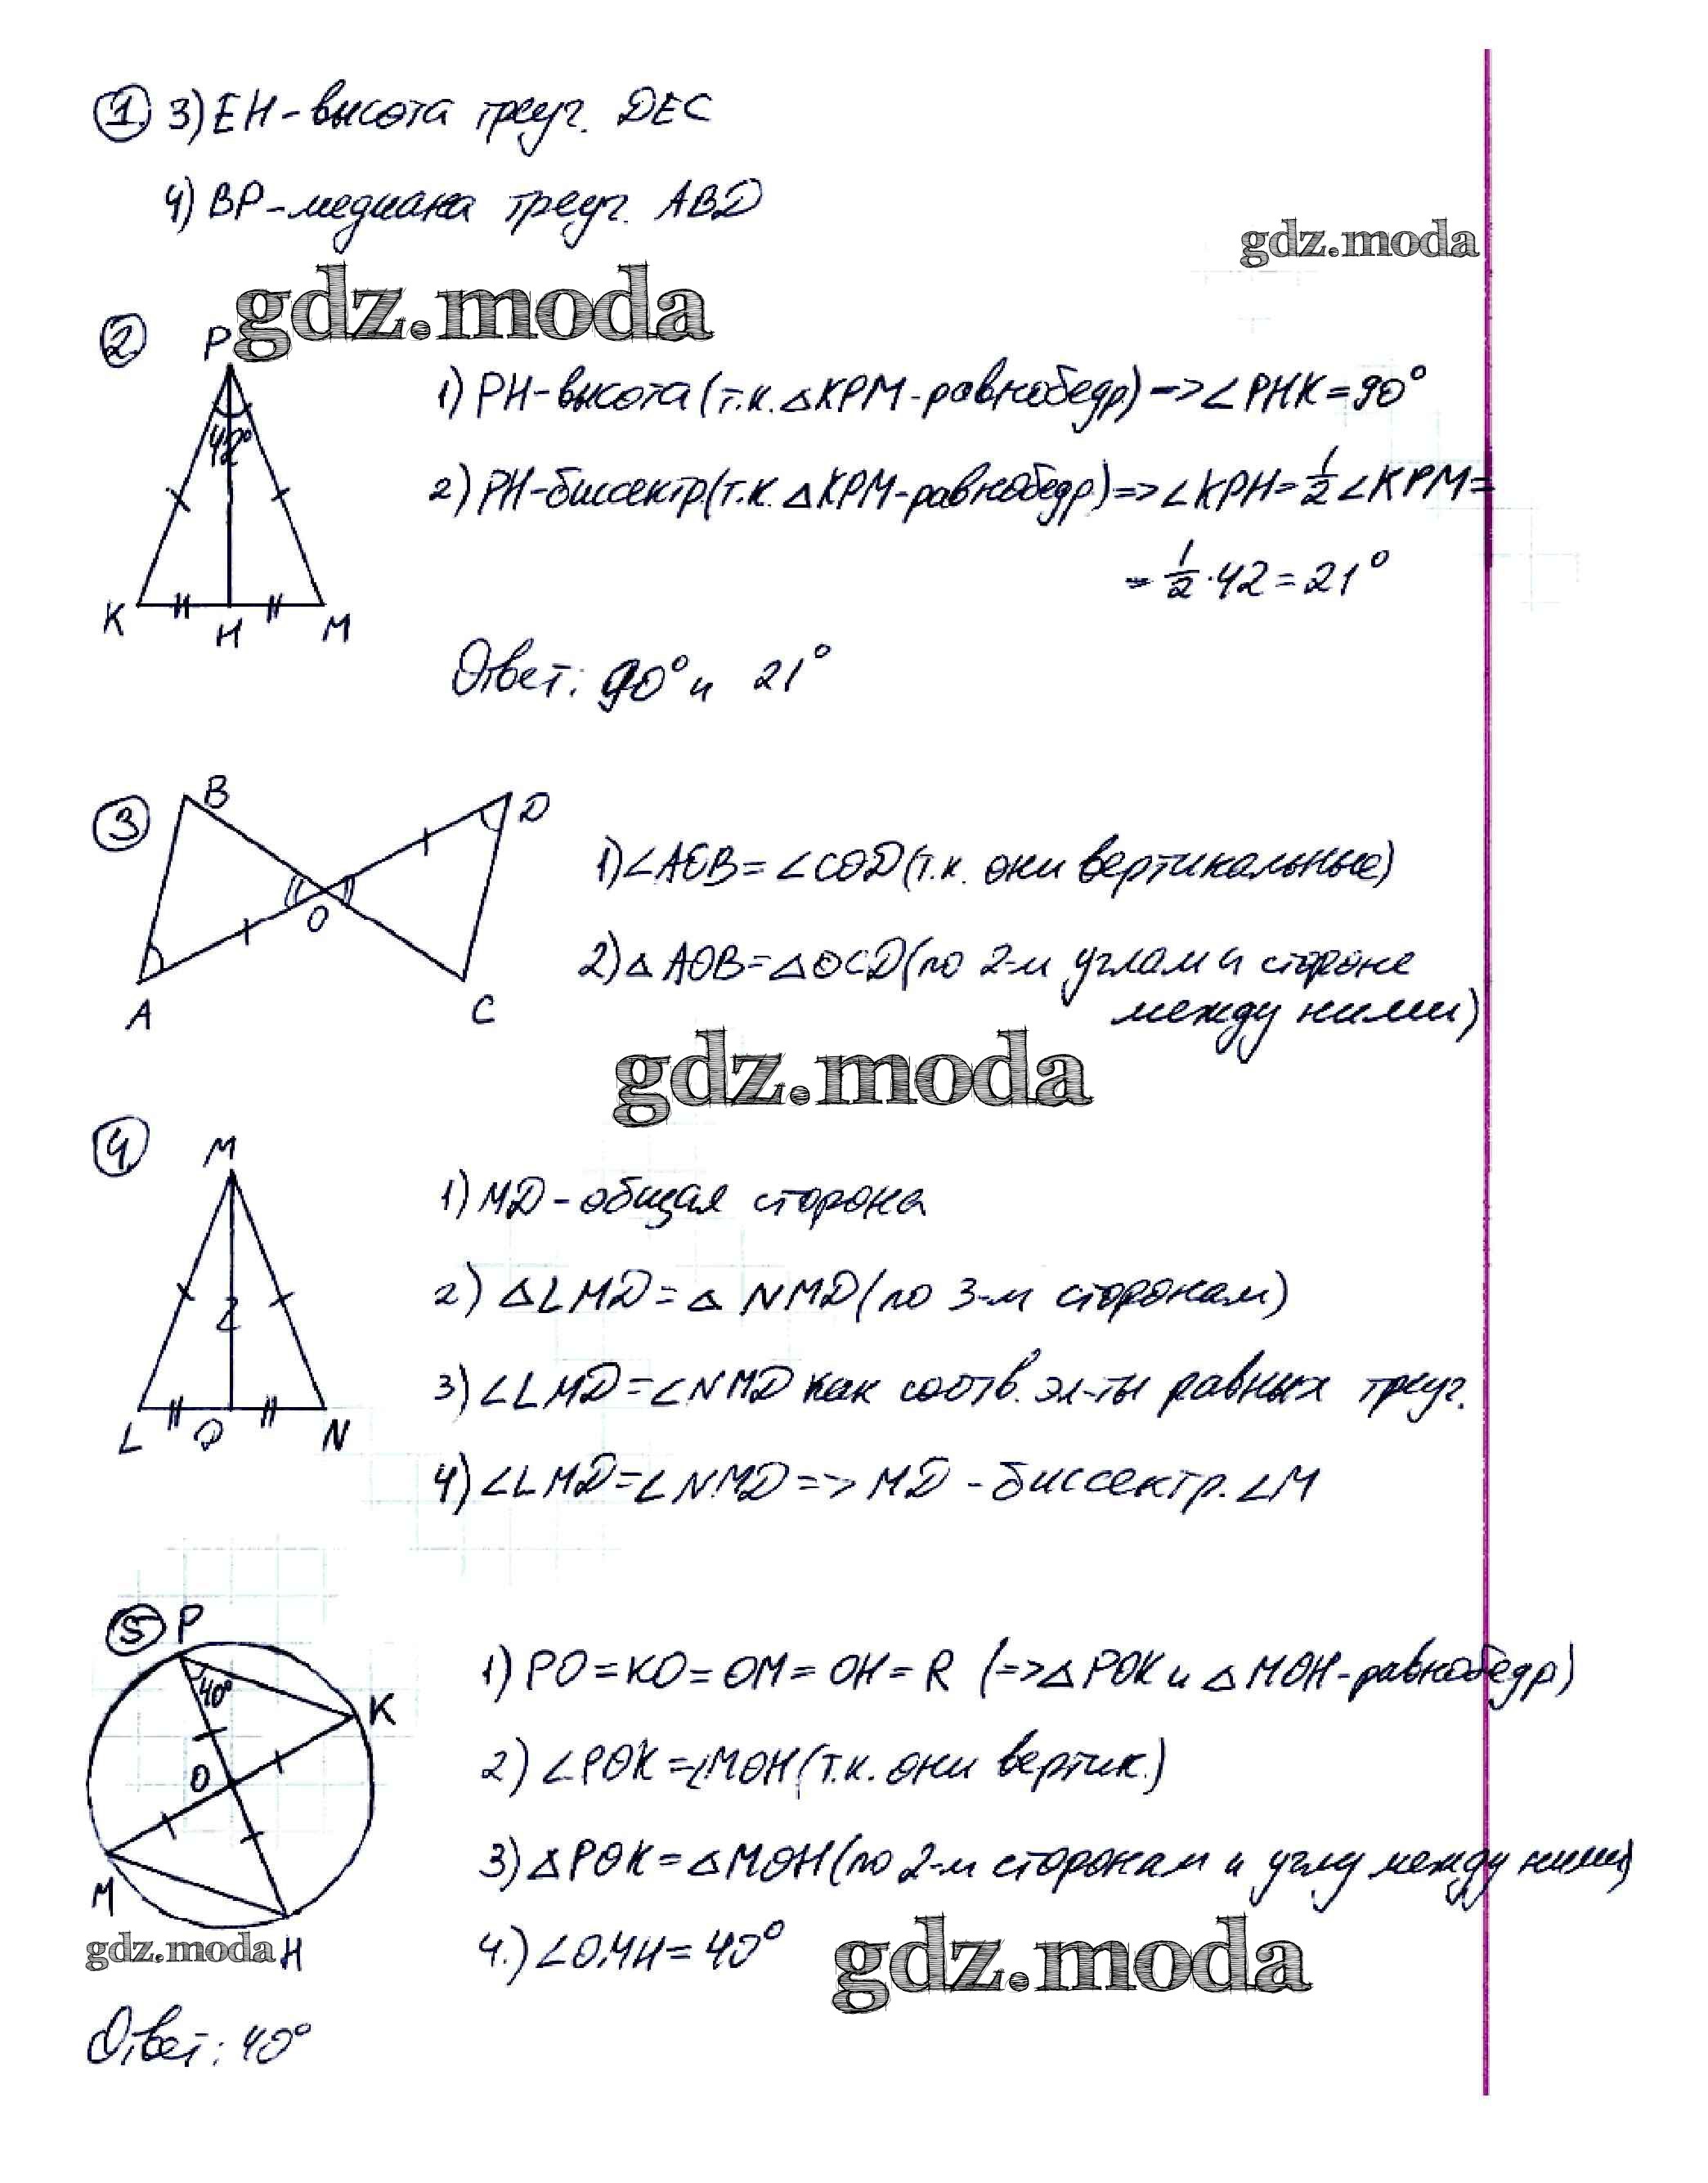 1. 3) EH - высота треуг. DEC
4) BP - медиана треуг. ABD
gdz.moda
gdz.moda
2. P
42°
K H M
1) PH - высота (т.к. △KPM - равнобедр) => ∠PHK = 90°
2) PH - биссектр. (т.к. △KPM - равнобедр.) => ∠KPH = 1/2 ∠KPM =
= 1/2 · 42 = 21°
Ответ: 90° и 21°
3. B D
O
A C
1) ∠AOB = ∠COD (т.к. они вертикальные)
2) △AOB = △OCD (по 2-м углам и стороне
между ними)
gdz.moda
4. M
L D N
1) MD - общая сторона
2) △LMD = △NMD (по 3-м сторонам)
3) ∠LMD = ∠NMD как соотв. эл-ты равных треуг.
4) ∠LMD = ∠NMD => MD - биссектр. ∠M
5. P
40°
K
O
M
H
1) PO = KO = OM = OH = R (=> △POK и △MOH - равнобедр)
2) ∠POK = ∠MOH (т.к. они вертик.)
3) △POK = △MOH (по 2-м сторонам и углу между ними)
4.) ∠OMH = 40°
gdz.moda
gdz.moda
Ответ: 40°